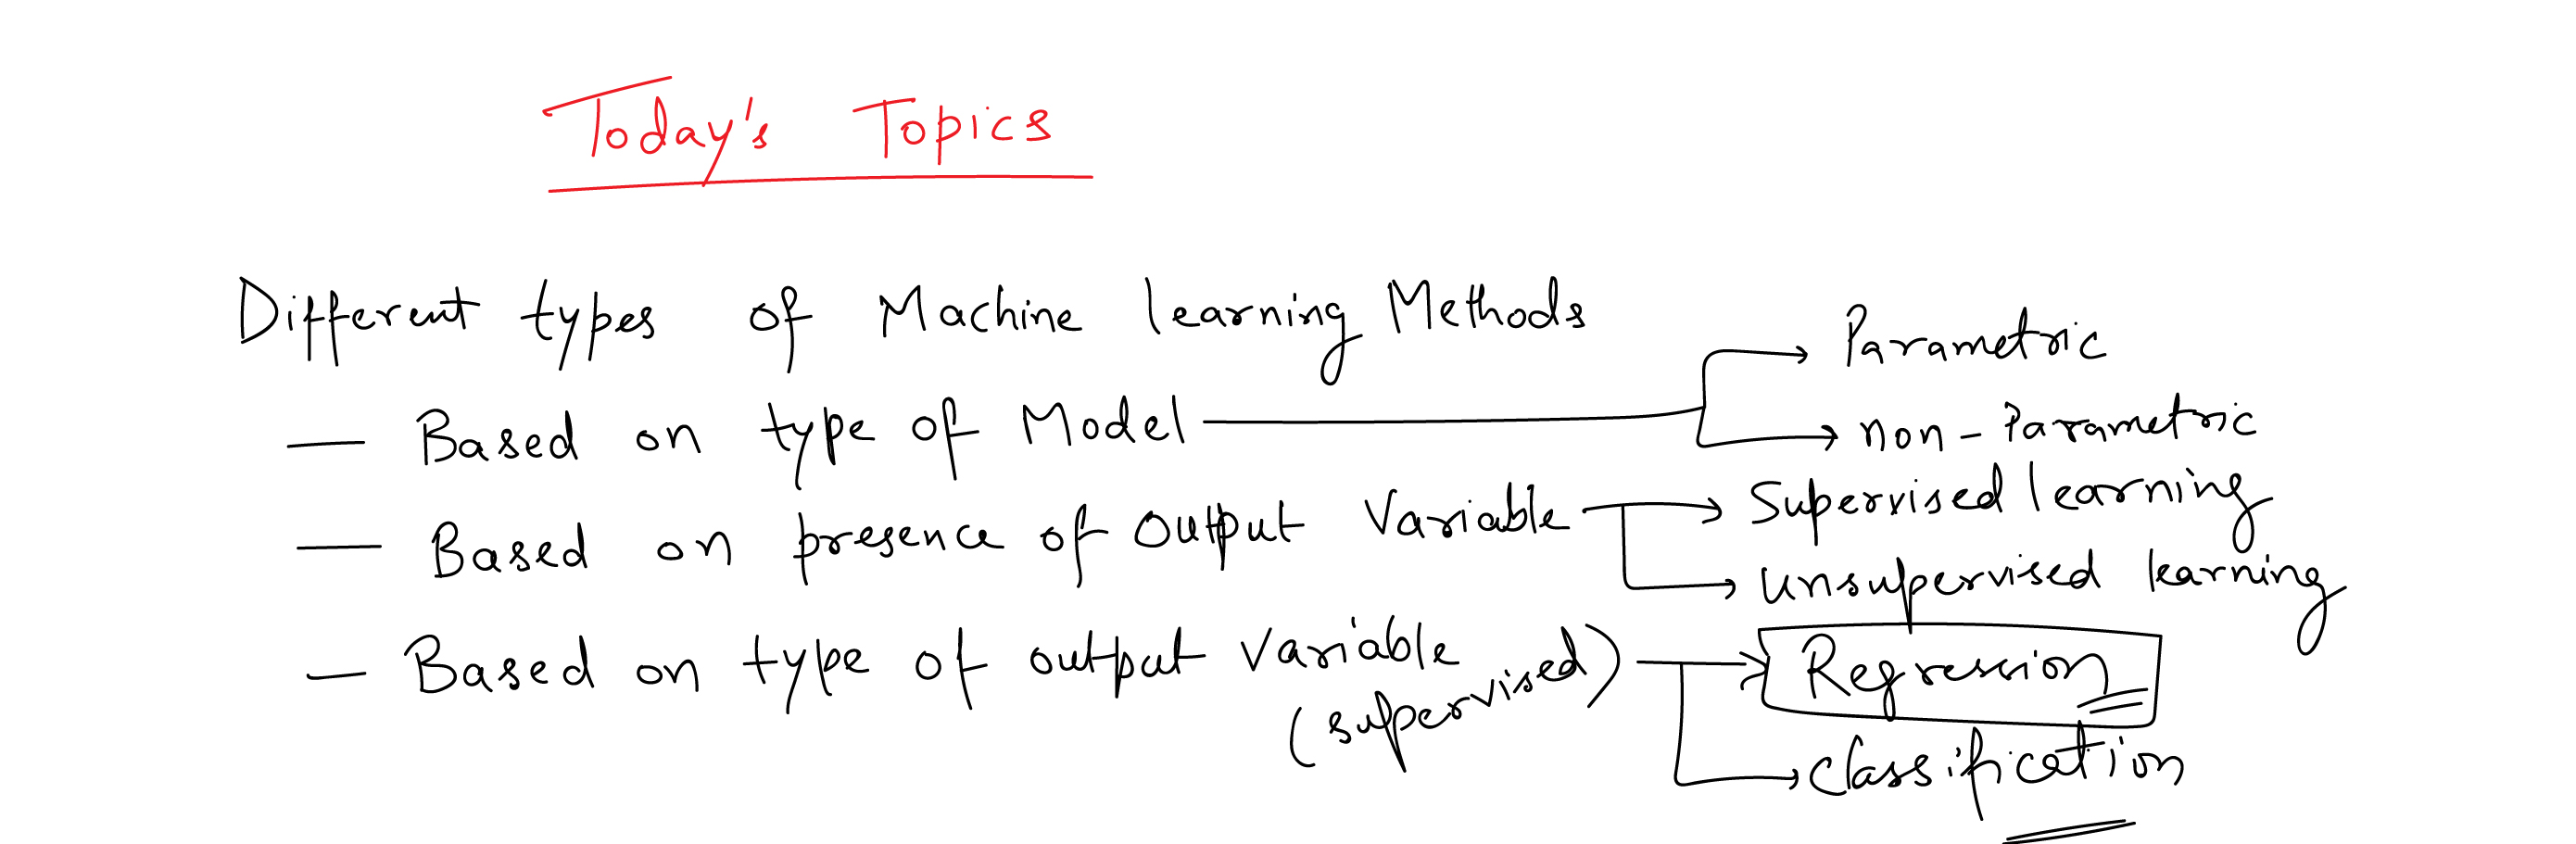 Today's Topics
Different types of Machine learning Methods
— Based on type of Model → Parametric
→ non-Parametric
— Based on presence of output Variable → Supervised learning
→ unsupervised learning
— Based on type of output variable (supervised) → Regression
→ classification